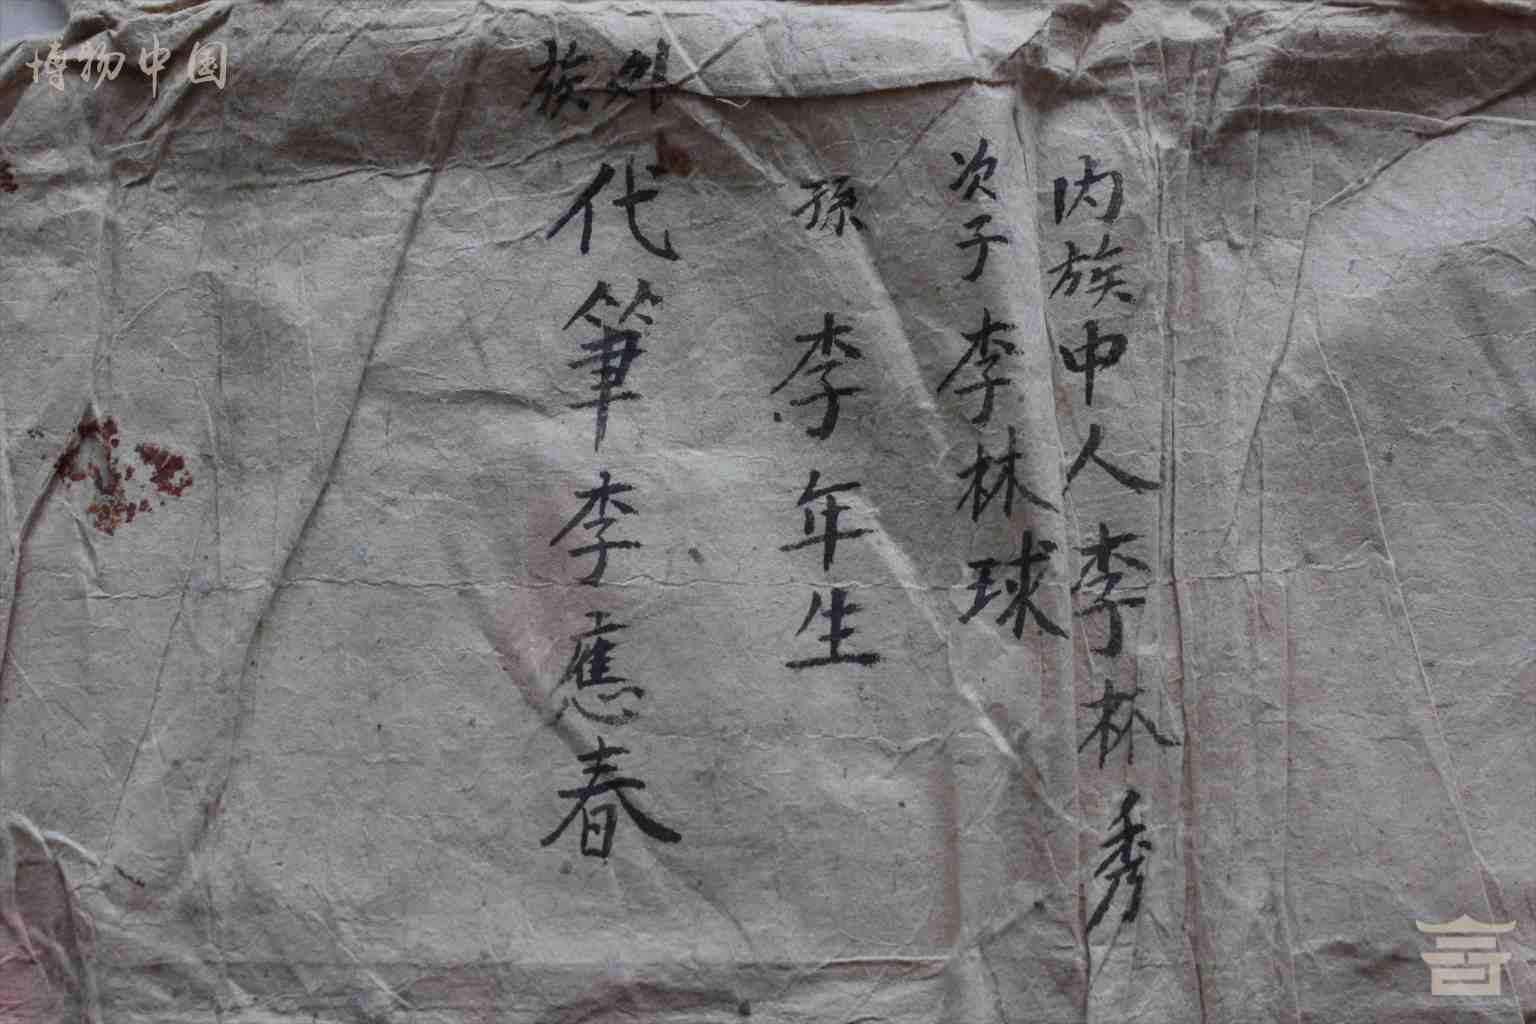 博物中国
内族中人李林秀
次子李林球
孫李年生
外族
代筆李應春